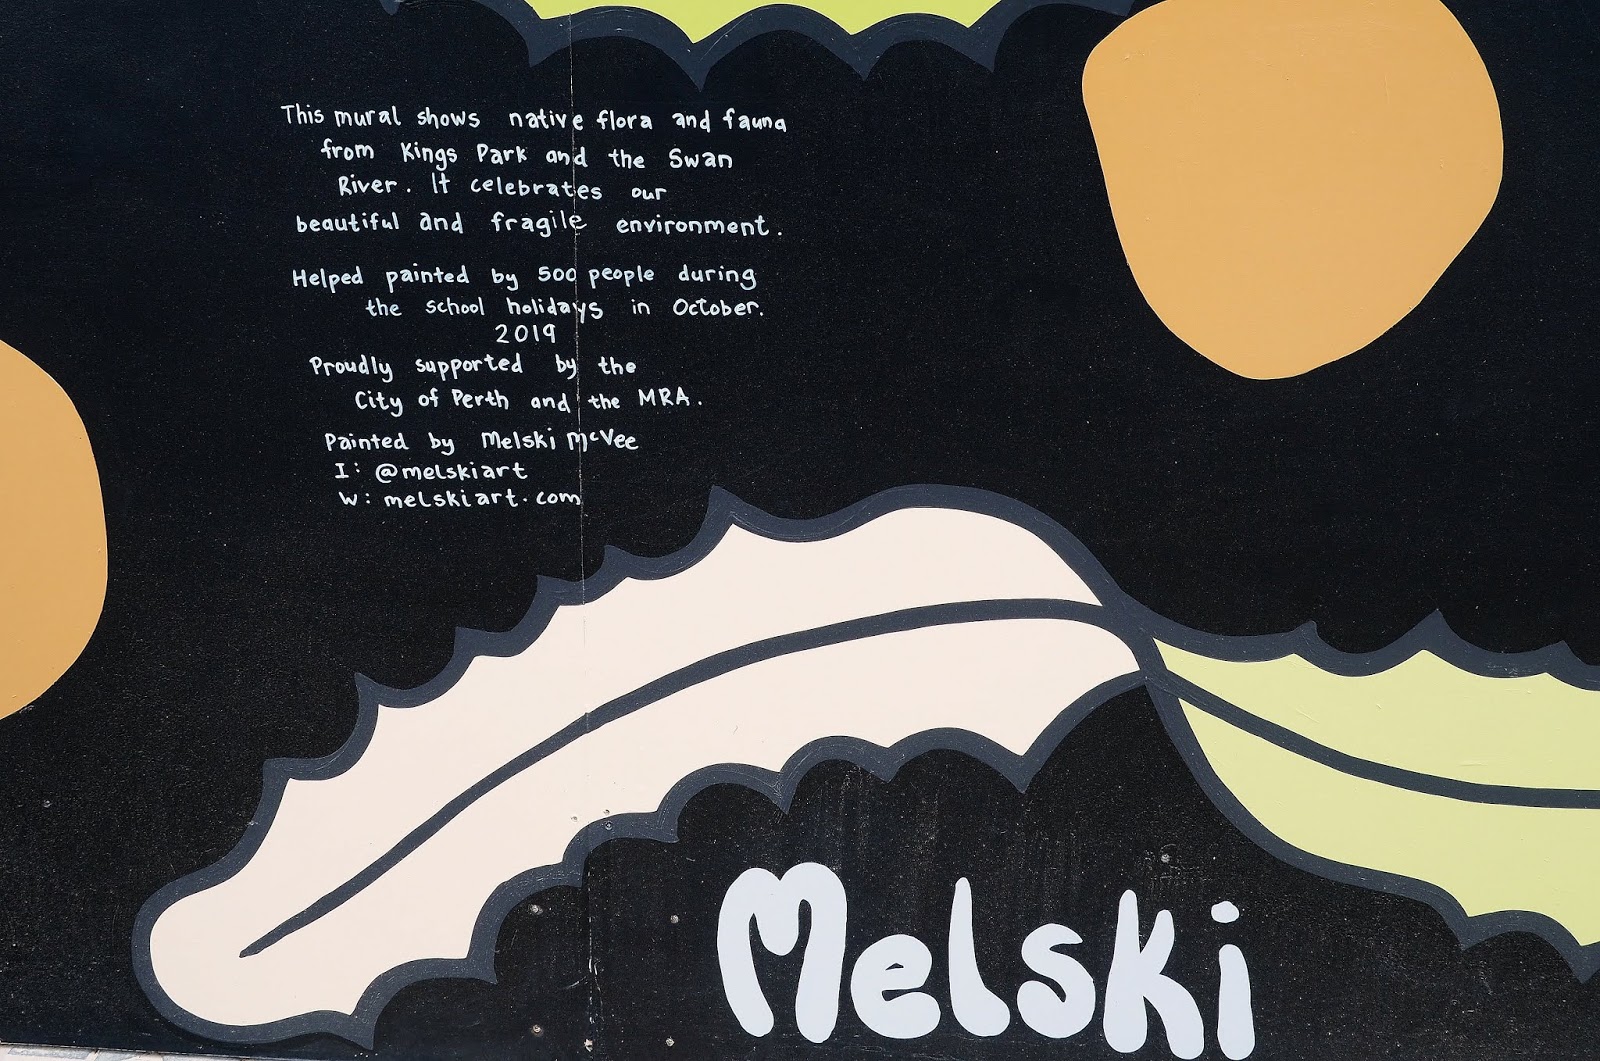 This mural shows native flora and fauna
from Kings Park and the Swan
River. It celebrates our
beautiful and fragile environment.
Helped painted by 500 people during
the school holidays in October.
2019
Proudly supported by the
City of Perth and the MRA.
Painted by Melski McVee
I: @melskiart
W: melskiart.com
Melski